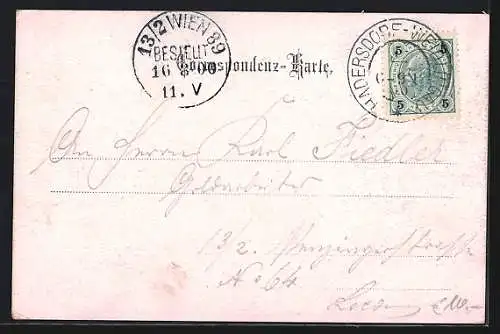 13/2 WIEN 89
BESTELLT
16 8 00
11. V
Correspondenz-Karte.
HADERSDORF-WEIDLINGAU
5 5
5 5
An Herrn Karl Fiedler
Goldarbeiter
13/2. Penzingerstrasse
No 64